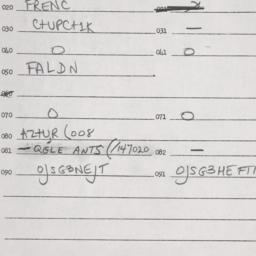 020 FRENC
030 C+UPC+1K 031 —
040 O 041 O
050 FALDN
070 O 071 O
080 AZTUR (008
081 — QGLE ANTS (/147020 082 —
090 OJSG3NEJT 091 OJSG3HEFTI